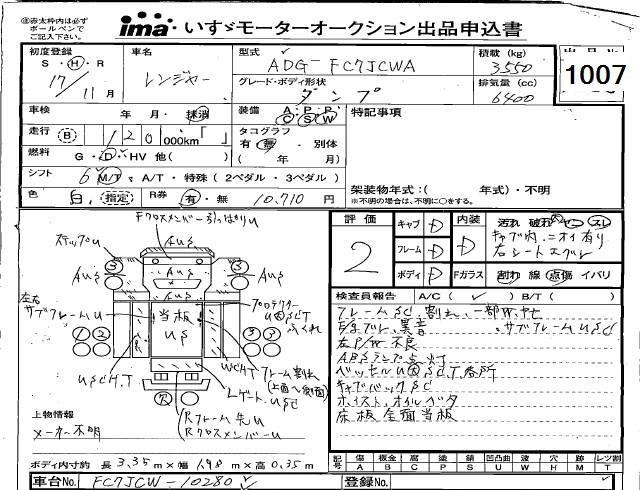 ㊟赤太枠内は必ず
ボールペンで
ご記入下さい。
ima いすゞモーターオークション出品申込書
初度登録 車名 型式 積載 (kg)
S・H・R 17/11月 レンジャー ADG-FC7JCWA 3550
1007
グレード・ボディ形状 排気量 (cc)
ダンプ 6400
車検 年 月・抹消 装備 A・P・P C・S・W 特記事項
走行 B 120 000km「 」 タコグラフ
有・無・別体
燃料 G・D・HV 他( ) ( 年 月)
シフト 6 M/T・A/T・特殊(2ペダル・3ペダル)
架装物年式:( 年式)・不明
※不明の場合は、不明に○をする。
色 白 (指定) R券 有・無 10,710円
Fクロスメンバー引っぱりU
ステップU
AUS
AUS
AUS
左右
サブフレームU
プロテクター
ふくれ
当板
US
1 2
3 3
USCH.T
WCH.T
フレーム割れ
Lゲート.USC
穴
Rフレーム先U
RクロスメンバーU
上物情報
メーカー不明
ボディ内寸約 長 3.35m×幅 1.98m×高 0.35m
車台No. FC7JCW-10280
評価 キャブ D 内装 汚れ 破れ ヤニ スレ
2 フレーム D D キャブ内.ニオイ有り
右シートスクレ
ボディ D Fガラス 割れ 線 点傷 イバリ
検査員報告 A/C( ✓ ) B/T( )
フレームSC.割れ.一部W.セ
異音 サブフレームUSC
左P/W不良
ABSランプ点灯
キャブバックSC
ホイスト.オイルベタ
床板全面当板
記号 傷 板金 腐 塗 錆 凹凸曲 波 穴 目 時 レツ割
A B C P S U W H M T
登録No.